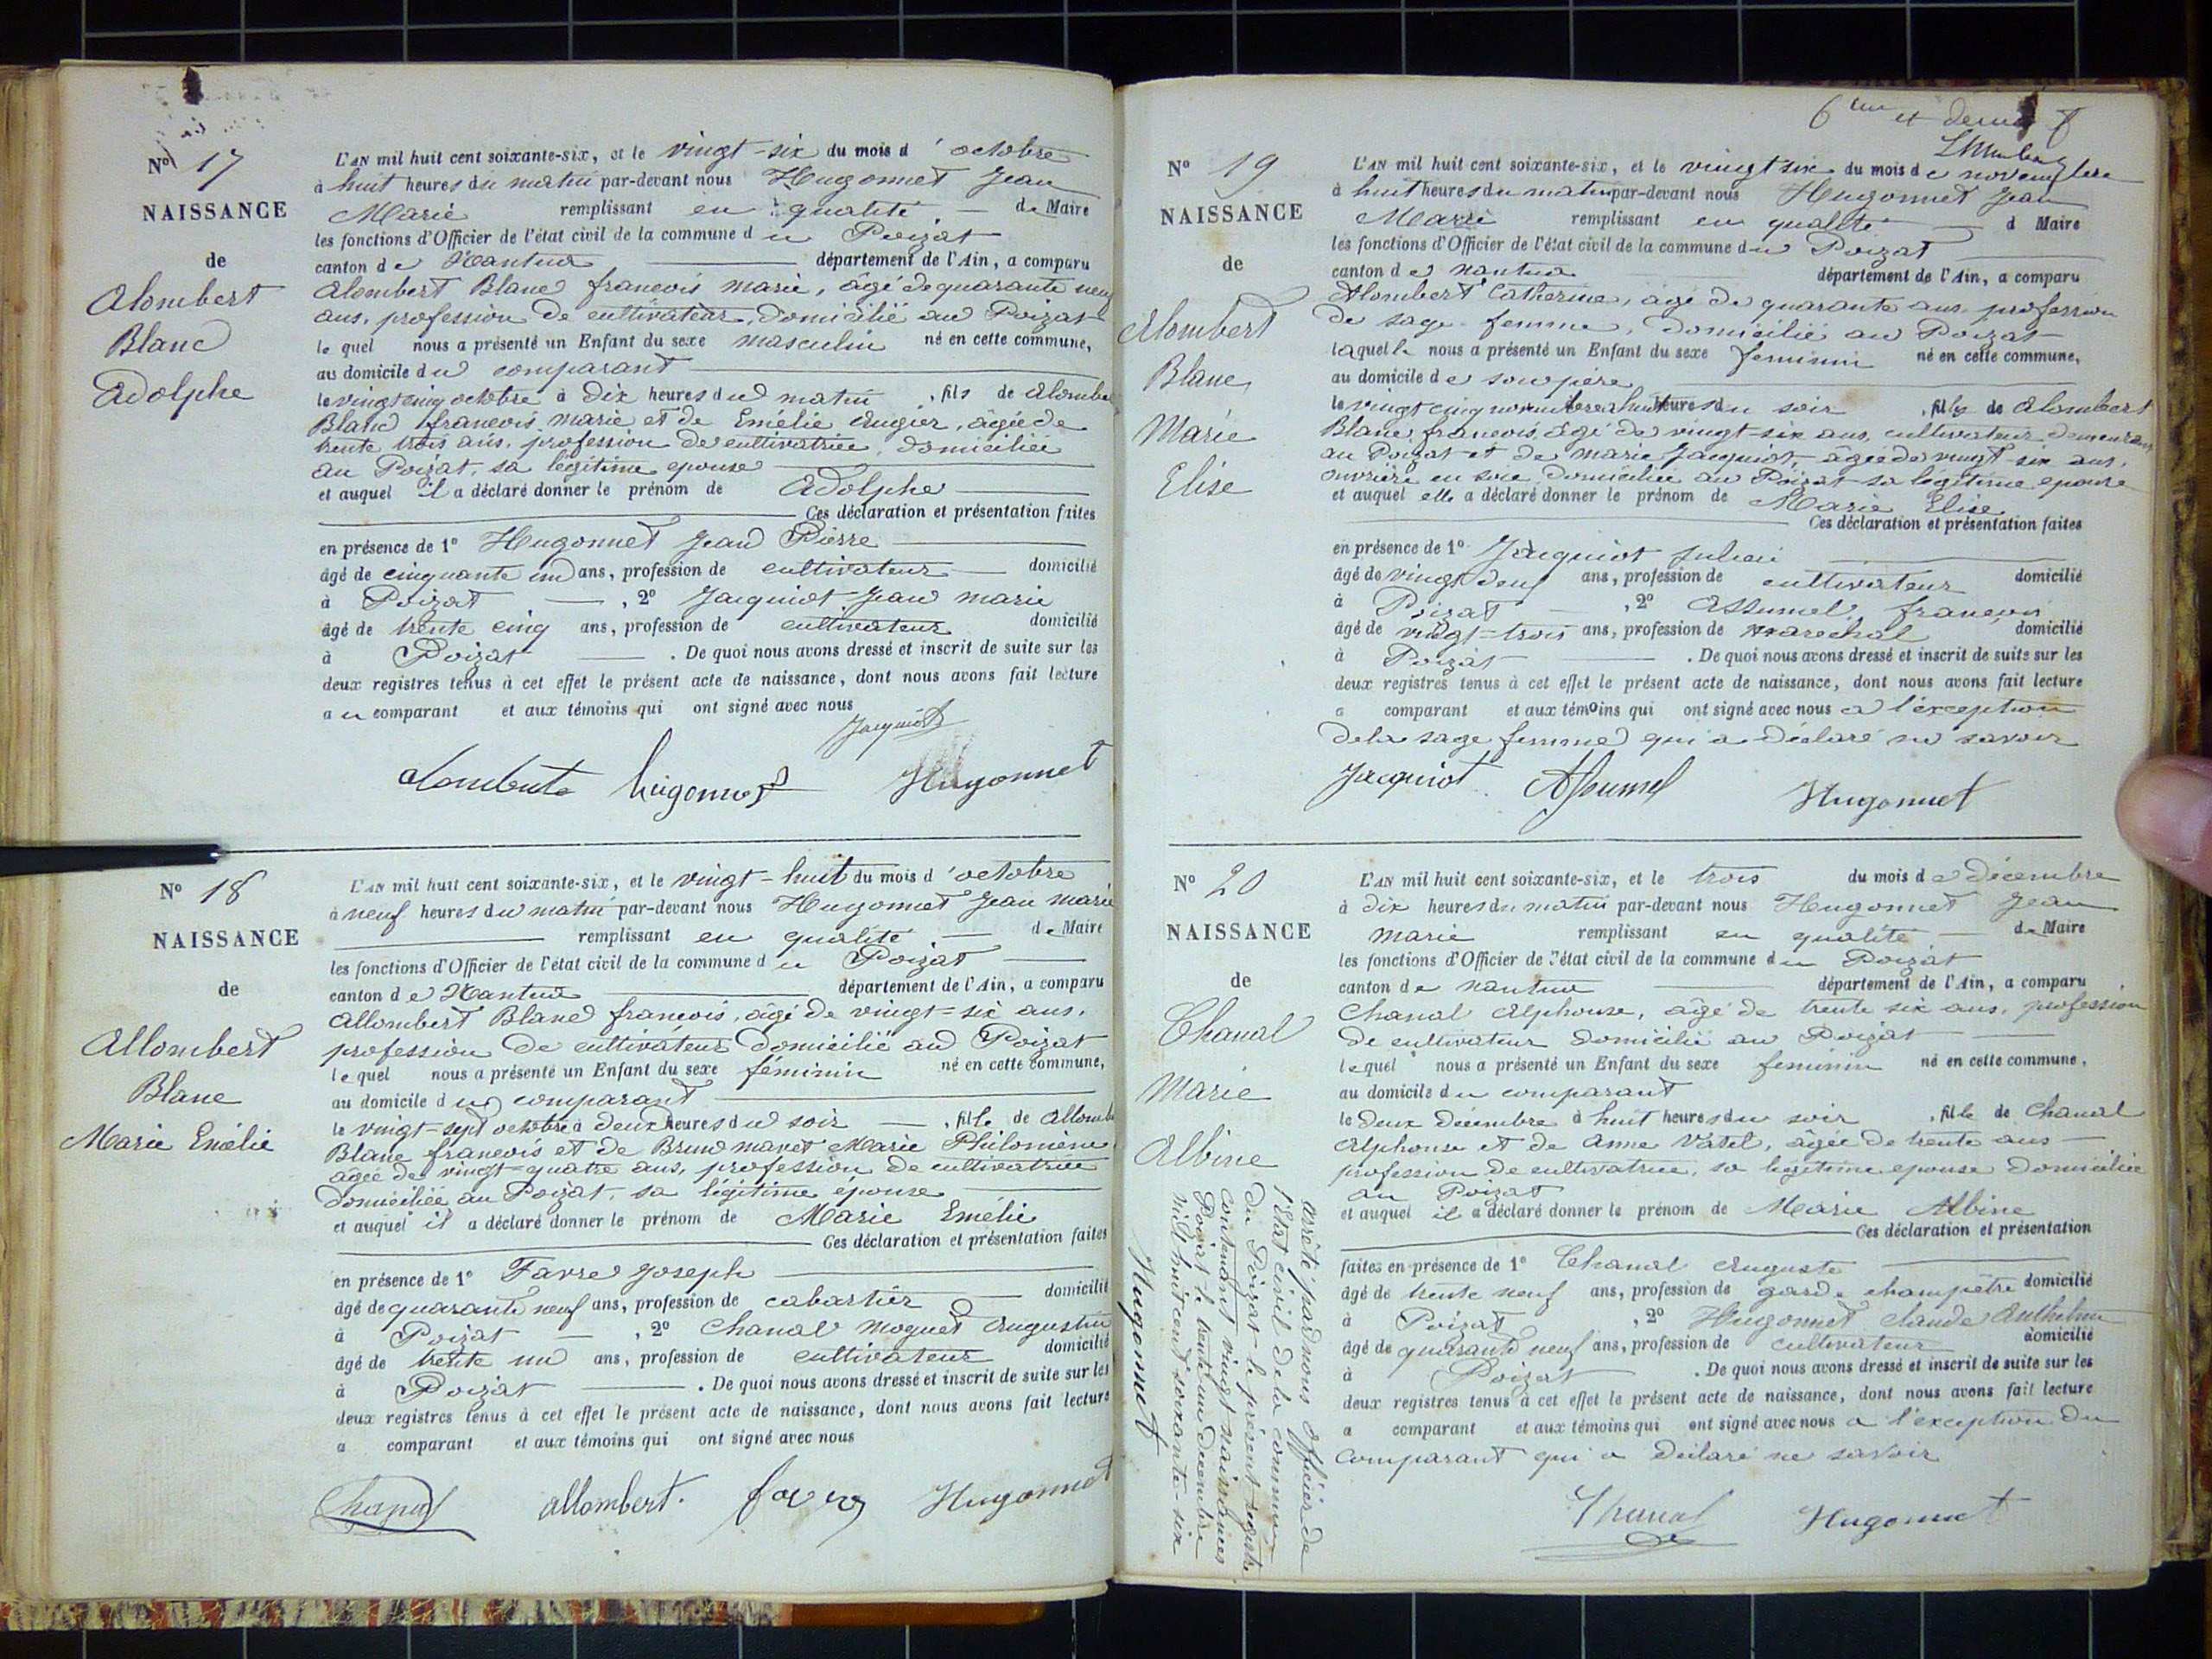 N° 17
NAISSANCE
de
Alombert
Blanc
Adolphe
L'AN mil huit cent soixante-six, et le vingt-six du mois d'octobre
à huit heures du matin par-devant nous Hugonnet Jean
Marie remplissant en qualité de Maire
les fonctions d'Officier de l'état civil de la commune du Poizat
canton de Nantua département de l'Ain, a comparu
Alombert Blanc françois marie, âgé de quarante neuf
ans, profession de cultivateur, domicilié au Poizat
le quel nous a présenté un Enfant du sexe masculin né en cette commune,
au domicile du comparant
le vingt cinq octobre à dix heures du matin, fils de Alombe
Blanc françois marie et de Emélie Augier, âgée de
trente trois ans, profession de cultivatrice, domiciliée
au Poizat, sa légitime epouse
et auquel il a déclaré donner le prénom de Adolphe
Ces déclaration et présentation faites
en présence de 1° Hugonnet Jean Pierre
âgé de cinquante un ans, profession de cultivateur domicilié
à Poizat, 2° Jacquiot Jean marie
âgé de trente cinq ans, profession de cultivateur domicilié
à Poizat. De quoi nous avons dressé et inscrit de suite sur les
deux registres tenus à cet effet le présent acte de naissance, dont nous avons fait lecture
au comparant et aux témoins qui ont signé avec nous
Jacquiot
hugonnet Hugonnet
N° 18
NAISSANCE
de
Allombert
Blanc
Marie Emélie
L'AN mil huit cent soixante-six, et le vingt-huit du mois d'octobre
à neuf heures du matin par-devant nous Hugonnet Jean marie
remplissant en qualité de Maire
les fonctions d'Officier de l'état civil de la commune du Poizat
canton de Nantua département de l'Ain, a comparu
Allombert Blanc françois, âgé de vingt-six ans,
profession de cultivateur domicilié au Poizat
le quel nous a présenté un Enfant du sexe féminin né en cette commune,
au domicile du comparant
le vingt-sept octobre à deux heures du soir, fille de Allomb
Blanc françois et de Brun mavet Marie Philomène
âgée de vingt-quatre ans, profession de cultivatrice
domiciliée au Poizat, sa légitime épouse
et auquel il a déclaré donner le prénom de Marie Emélie
Ces déclaration et présentation faites
en présence de 1° Favre Joseph
âgé de quarante neuf ans, profession de cabartier domicilié
à Poizat, 2° Chanal Moquet Augustin
âgé de trente un ans, profession de cultivateur domicilié
à Poizat. De quoi nous avons dressé et inscrit de suite sur les
deux registres tenus à cet effet le présent acte de naissance, dont nous avons fait lecture
a comparant et aux témoins qui ont signé avec nous
Chanal allombert. favre Hugonnet
6eme et dernier f
N° 19
NAISSANCE
de
Alombert
Blanc
Marie
Elise
L'AN mil huit cent soixante-six, et le vingt six du mois de novembre
à huit heures du matin par-devant nous Hugonnet Jean
Marie remplissant en qualité d Maire
les fonctions d'Officier de l'état civil de la commune du Poizat
canton de nantua département de l'Ain, a comparu
Alombert Catherine, âgé de quarante ans, profession
de sage-femme, domicilié au Poizat
laquelle nous a présenté un Enfant du sexe feminin né en cette commune,
au domicile de son père
le vingt cinq novembre à huit heures du soir, fille de Alombert
Blanc françois, âgé de vingt-six ans, cultivateur demeurant
au Poizat et de marie Jacquiot, âgée de vingt-six ans,
ouvrière en soie domiciliée au Poizat sa légitime epouse
et auquel elle a déclaré donner le prénom de Marie Elise
Ces déclaration et présentation faites
en présence de 1° Jacquiot Julien
âgé de vingt deux ans, profession de cultivateur domicilié
à Poizat, 2° Assumel, françois
âgé de vingt-trois ans, profession de marechal domicilié
à Poizat. De quoi nous avons dressé et inscrit de suite sur les
deux registres tenus à cet effet le présent acte de naissance, dont nous avons fait lecture
a comparant et aux témoins qui ont signé avec nous à l'exception
de la sage femme qui a déclaré ne savoir
Jacquiot Assumel Hugonnet
N° 20
NAISSANCE
de
Chanal
Marie
Albine
L'AN mil huit cent soixante-six, et le trois du mois de décembre
à dix heures du matin par-devant nous Hugonnet Jean
marie remplissant en qualité de Maire
les fonctions d'Officier de l'état civil de la commune du Poizat
canton de nantua département de l'Ain, a comparu
Chanal Alphonse, âgé de trente six ans, profession
de cultivateur domicilié au Poizat
lequel nous a présenté un Enfant du sexe feminin né en cette commune,
au domicile du comparant
le deux décembre à huit heures du soir, fille de Chanal
Alphonse et de Anne Vatel, âgée de trente ans
profession de cultivatrice, sa légitime epouse domiciliée
au Poizat
et auquel il a déclaré donner le prénom de Marie Albine
Ces déclaration et présentation
faites en présence de 1° Chanal Auguste
âgé de trente neuf ans, profession de garde champêtre domicilié
à Poizat, 2° Hugonnet claude Anthelme
âgé de quarante neuf ans, profession de cultivateur domicilié
à Poizat. De quoi nous avons dressé et inscrit de suite sur les
deux registres tenus à cet effet le présent acte de naissance, dont nous avons fait lecture
a comparant et aux témoins qui ont signé avec nous a l'exception du
comparant qui a déclaré ne savoir
Chanal Hugonnet
Arrêté par nous officier de
l'Etat civil de la commune
du Poizat le présent registre
contenant vingt naissances
Poizat le trente un décembre
mil huit cent soixante-six
Hugonnet